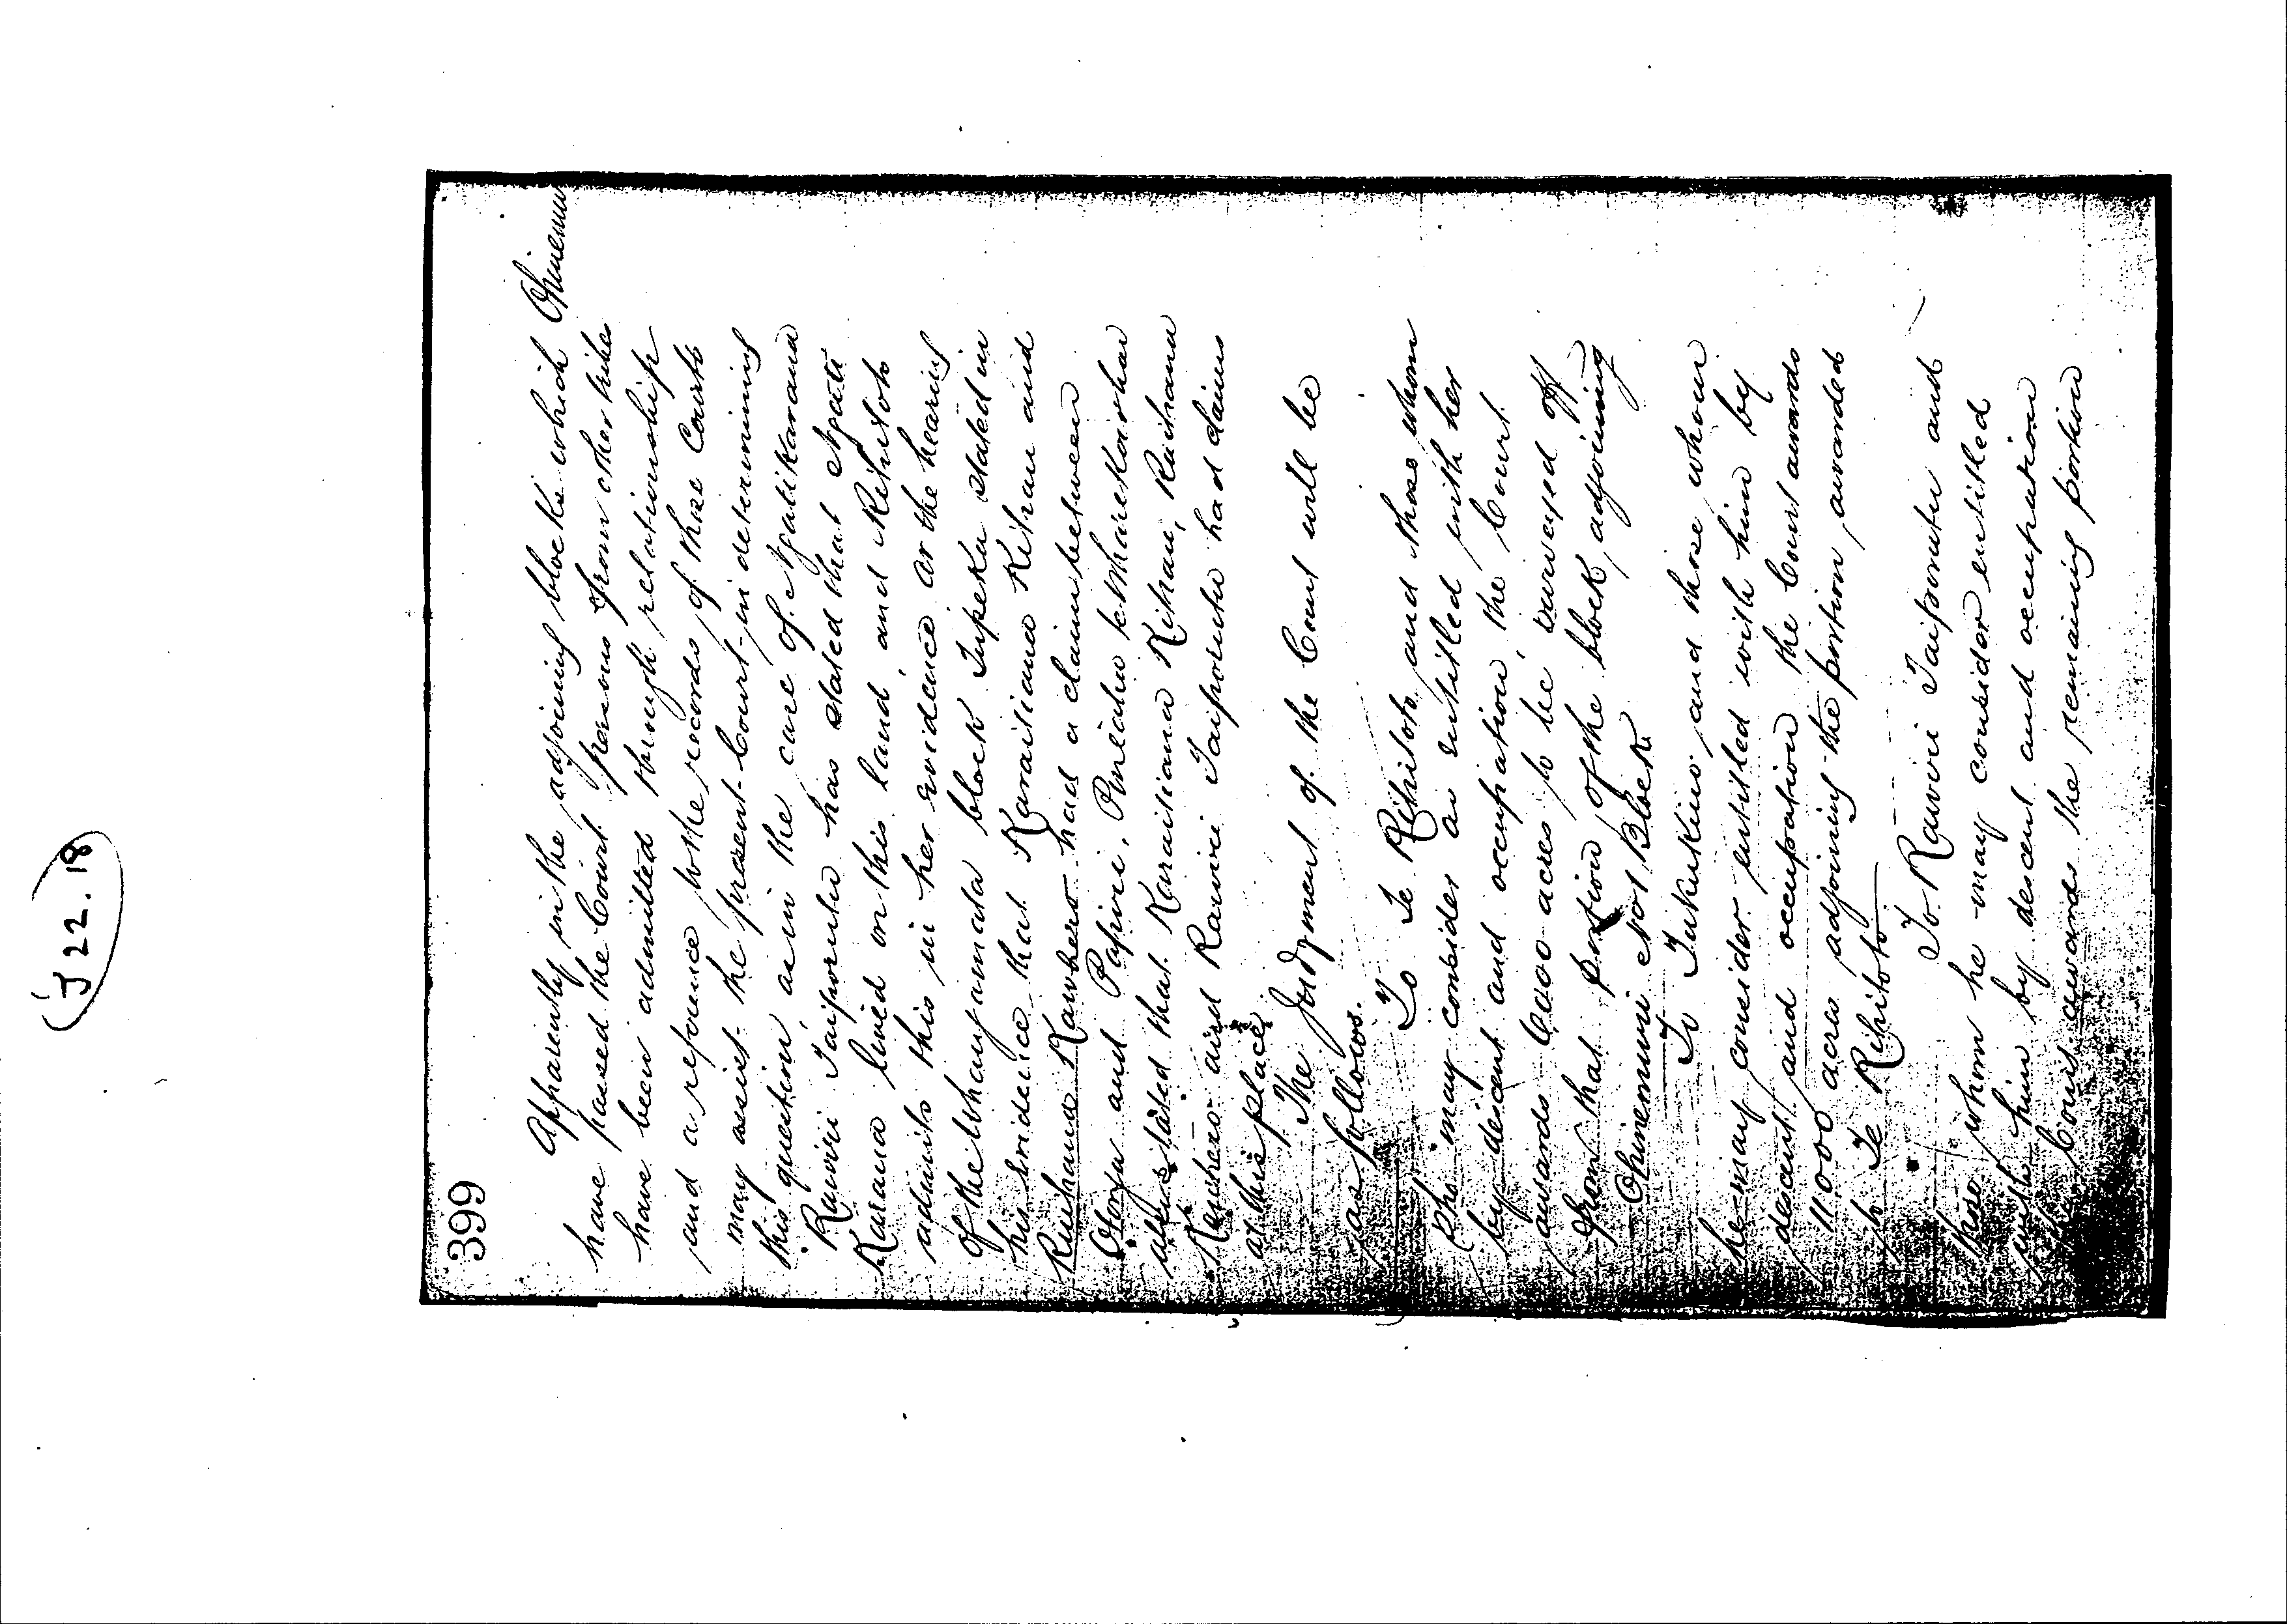 399
Ohinemuri
Apparently in the adjoining blocks which
have passed the Court persons from other tribes
have been admitted through relationship
and a reference to the records of those Courts
may assist the present Court in determining
this question, as in the case of Ngatikarana
Rawiri Taiporutu has stated that Ngati
Karana lived on this land, and Rihitoto
admits this in her evidence. At the hearing
of the Whangamata block Tupeka stated in
his evidence that Karaitiana Kihau and
Ruihana Kawhero had a claim between
and Papiri.
also stated that Karaitiana Kihau, Ruihana
Kawhero and Rawiri Taiporutu had claims
at this place
The Judgment of the Court will be
as follows.
To Te Rihitoto and those whom
she may consider as entitled with her
by descent and occupation, the Court
awards 6000 acres to be surveyed off
from that portion of the block adjoining
Ohinemuri No 1 Block
To Tukukino and those whom
he may consider entitled with him by
descent and occupation the Court awards
11000 acres adjoining the portion awarded
to Te Rihitoto
To Rawiri Taiporutu and
those whom he may consider entitled
with him by descent and occupation
the Court awards the remaining portion
J 22. 18